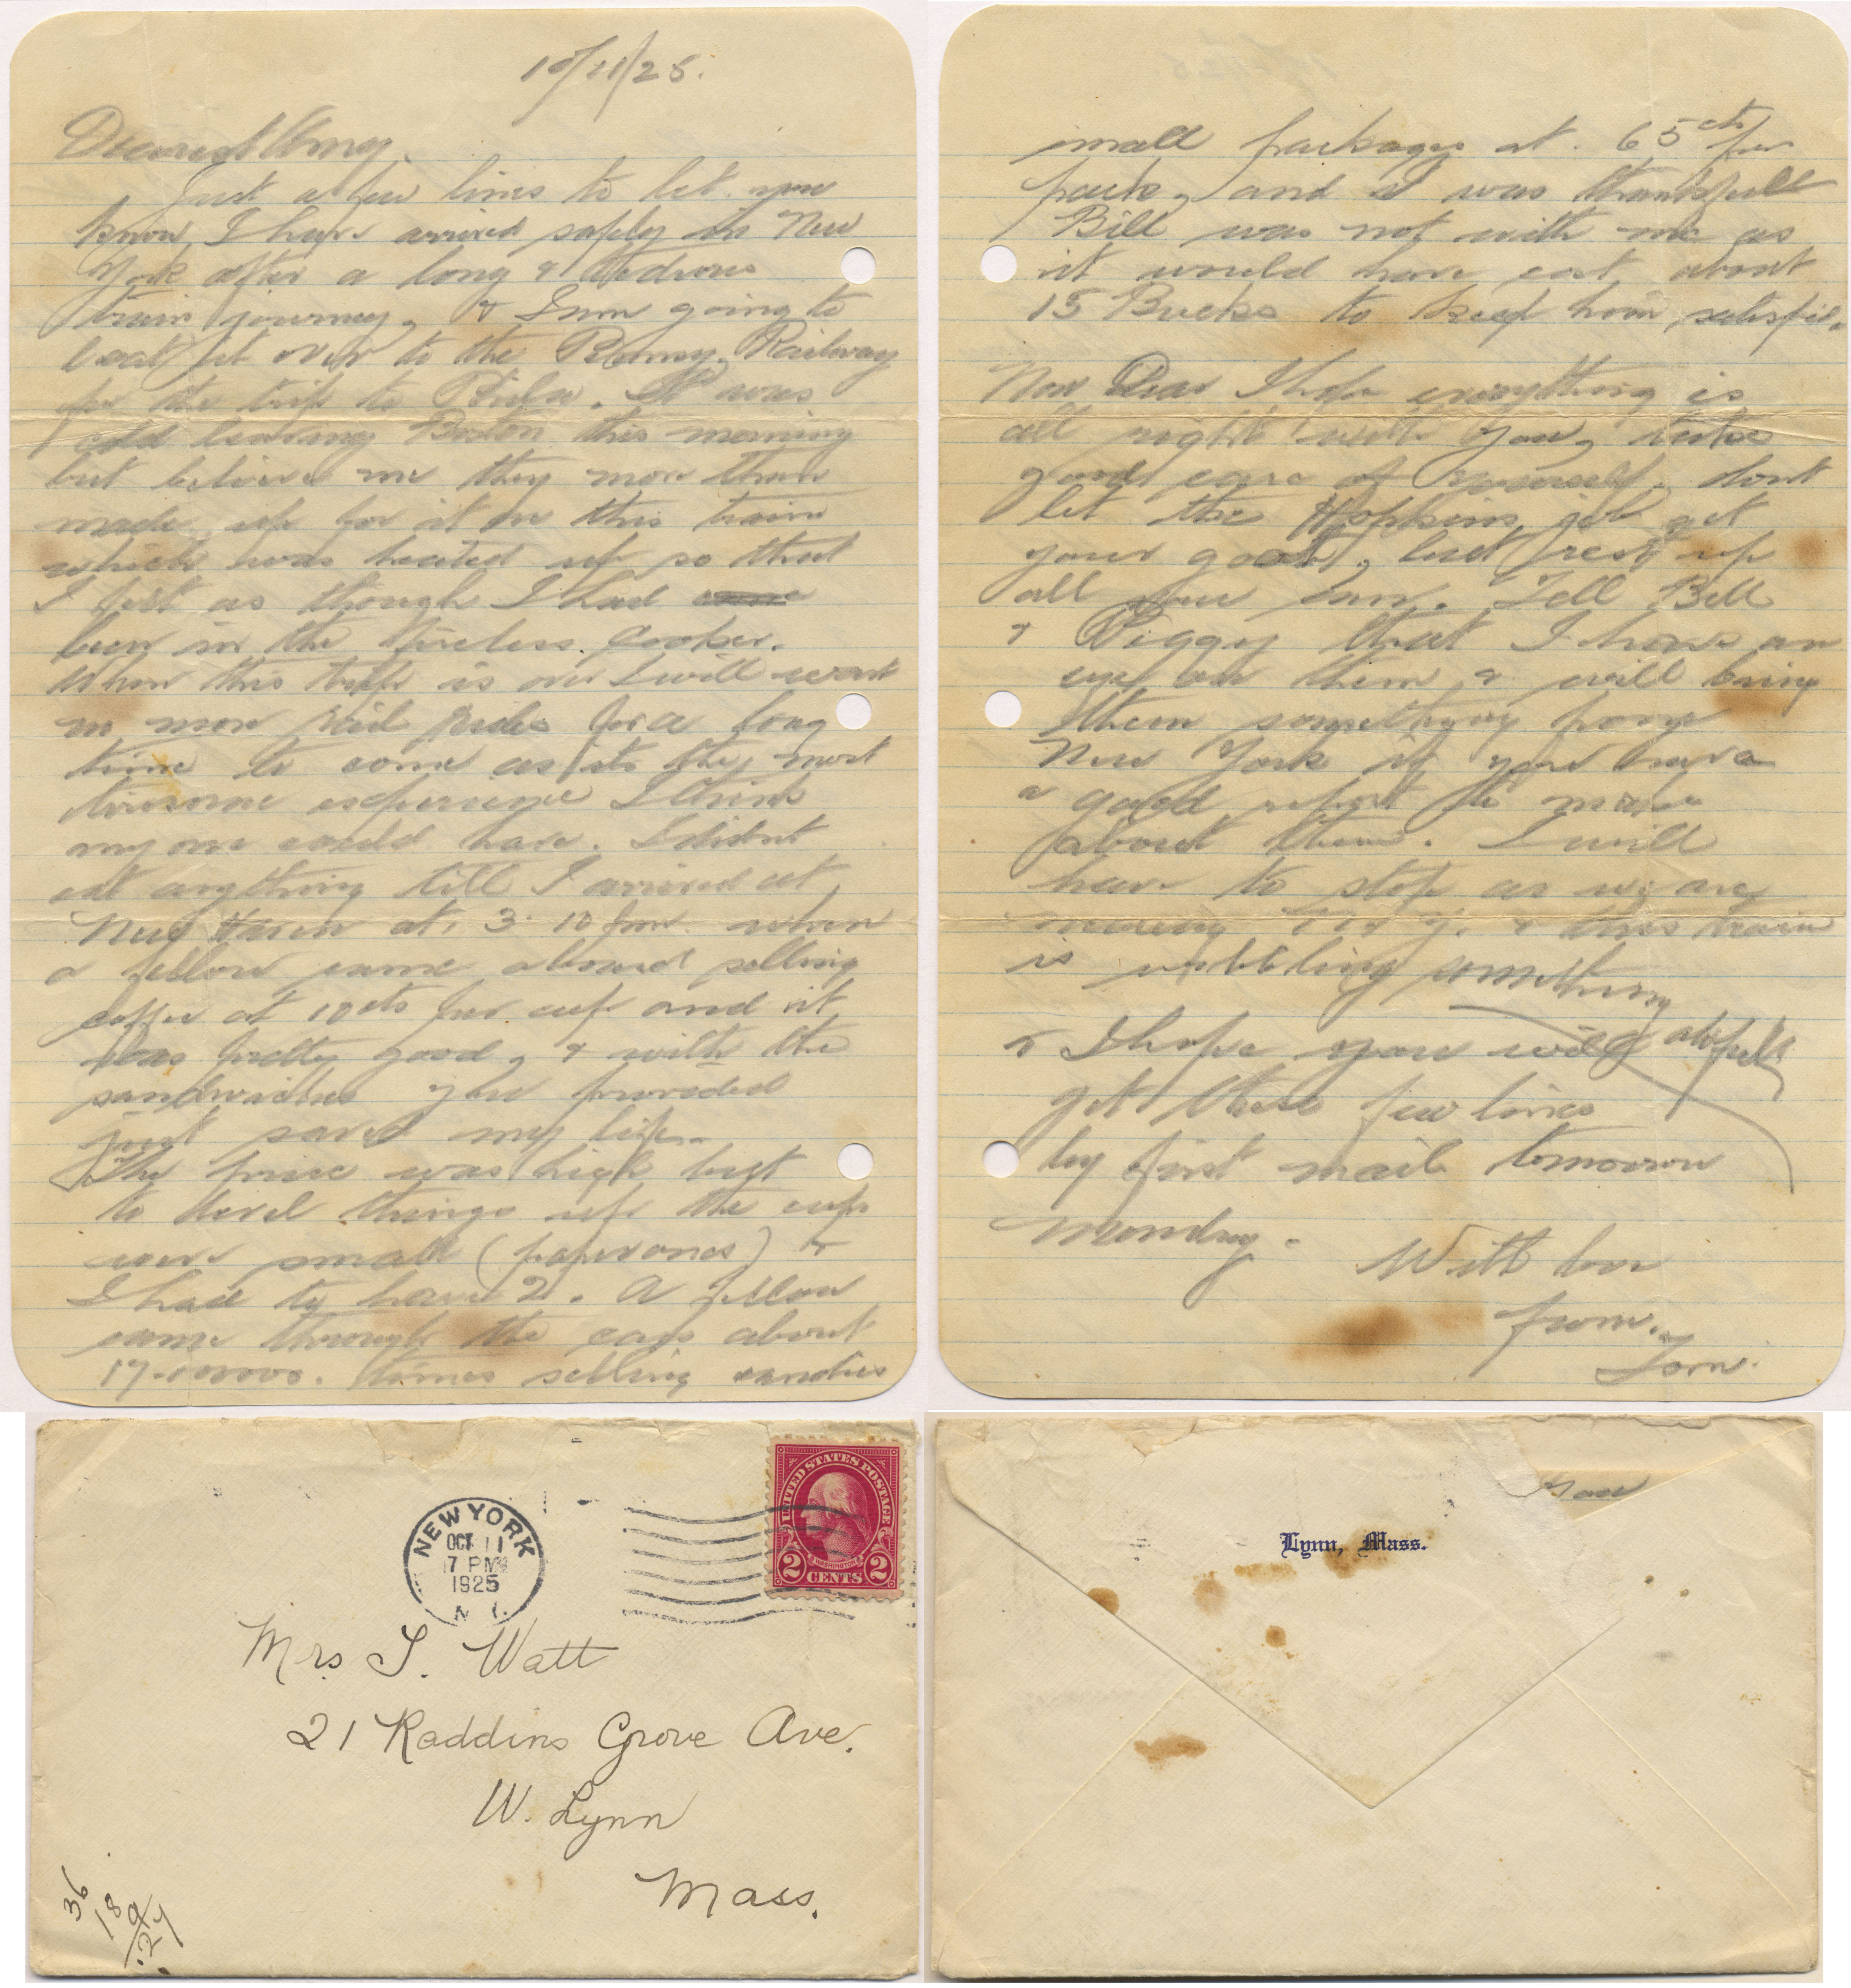 10/11/25.
Dearest Amy,
Just a few lines to let you
know I have arrived safely in New
York after a long & tedious
train journey, & I am going to
beat it over to the Penny. Railway
for the trip to Phila. It was
cold leaving Boston this morning
but believe me they more than
made up for it on this train
which was heated up so that
I felt as though I had
been in the fireless cooker.
When this trip is over I will want
no more rail rides for a long
time to come as its the most
tiresome experience I think
anyone could have. I didnt
eat anything till I arrived at
New Haven at. 3.10 pm. when
a fellow came aboard selling
coffee at 10cts per cup and it
was pretty good, & with the
sandwiches you provided
just saved my life.
The price was high but
to level things up the cups
were small (paper ones) &
I had to have 2. A fellow
came through the cars about
17.000000. times selling candies
small packages at. 65cts per
pack, and I was thankfull
Bill was not with me as
it would have cost about
15 Bucks to keep him satisfied.
Now Dear I hope everything is
all right with you, take
good care of yourself, dont
let the Hopkins job get
your goat, but rest up
all you can. Tell Bill
& Piggy that I have an
eye on them & will bring
them something from
New York if you have
a good report to make
about them. I will
have to stop as we are
nearing N.Y. & this train
is wobbling something
awful
& I hope you will
get these few lines
by first mail tomorrow
Monday.
With love
from.
Tom.
NEW YORK
OCT 11
7 PM
1925
N.Y.
UNITED STATES POSTAGE
WASHINGTON
2 CENTS 2
Mrs T. Watt
21 Raddins Grove Ave.
W. Lynn
Mass.
36
189
.27
Mass
Lynn, Mass.